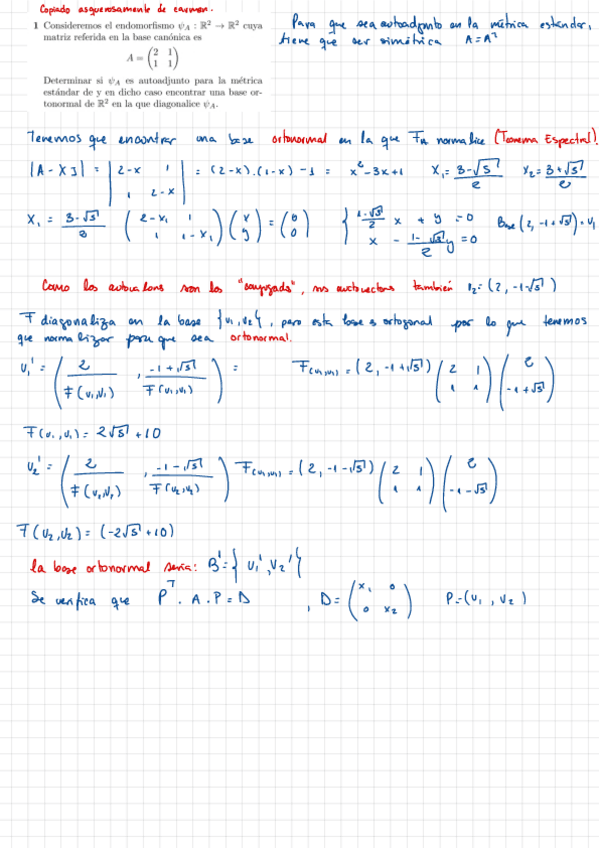 Copiado asquerosamente de carmen.
1 Consideremos el endomorfismo ψ_A : ℝ² → ℝ² cuya
matriz referida en la base canónica es
A = (2 1
1 1)
Determinar si ψ_A es autoadjunto para la métrica
estándar de y en dicho caso encontrar una base or-
tonormal de ℝ² en la que diagonalice ψ_A.
Para que sea autoadjunto en la métrica estándar,
tiene que ser simétrica A=A^t
Tenemos que encontrar una base ortonormal en la que F_A normalice (Teorema Espectral).
|A - XI| = |2-x 1
1 2-x| = (2-x).(1-x) - 1 = x²-3x+1 X₁ = (3-√5)/2 X₂ = (3+√5)/2
X₁ = (3-√5)/2 (2-x₁ 1
1 1-x₁) (x
y) = (0
0) { (1-√5)/2 x + y = 0
x - (1-√5)/2 y = 0 Base (2, -1+√5) = v₁
Como los autovalores son los "conjugados", sus autovectores también v₂ = (2, -1-√5)
F diagonaliza en la base {v₁,v₂}, pero esta base es ortogonal por lo que tenemos
que normalizar para que sea ortonormal.
v₁' = (2/F(v₁,v₁), (-1+√5)/F(v₁,v₁)) = F(v₁,v₁) = (2, -1+√5) (2 1
1 1) (2
-1+√5)
F(v₁,v₁) = 2√5 + 10
v₂' = (2/F(v₂,v₂), (-1-√5)/F(v₂,v₂)) F(v₂,v₂) = (2, -1-√5) (2 1
1 1) (2
-1-√5)
F(v₂,v₂) = (-2√5 + 10)
la base ortonormal sería: B' = {v₁', v₂'}
Se verifica que P^T . A . P = D , D = (x₁ 0
0 x₂) P = (v₁, v₂)